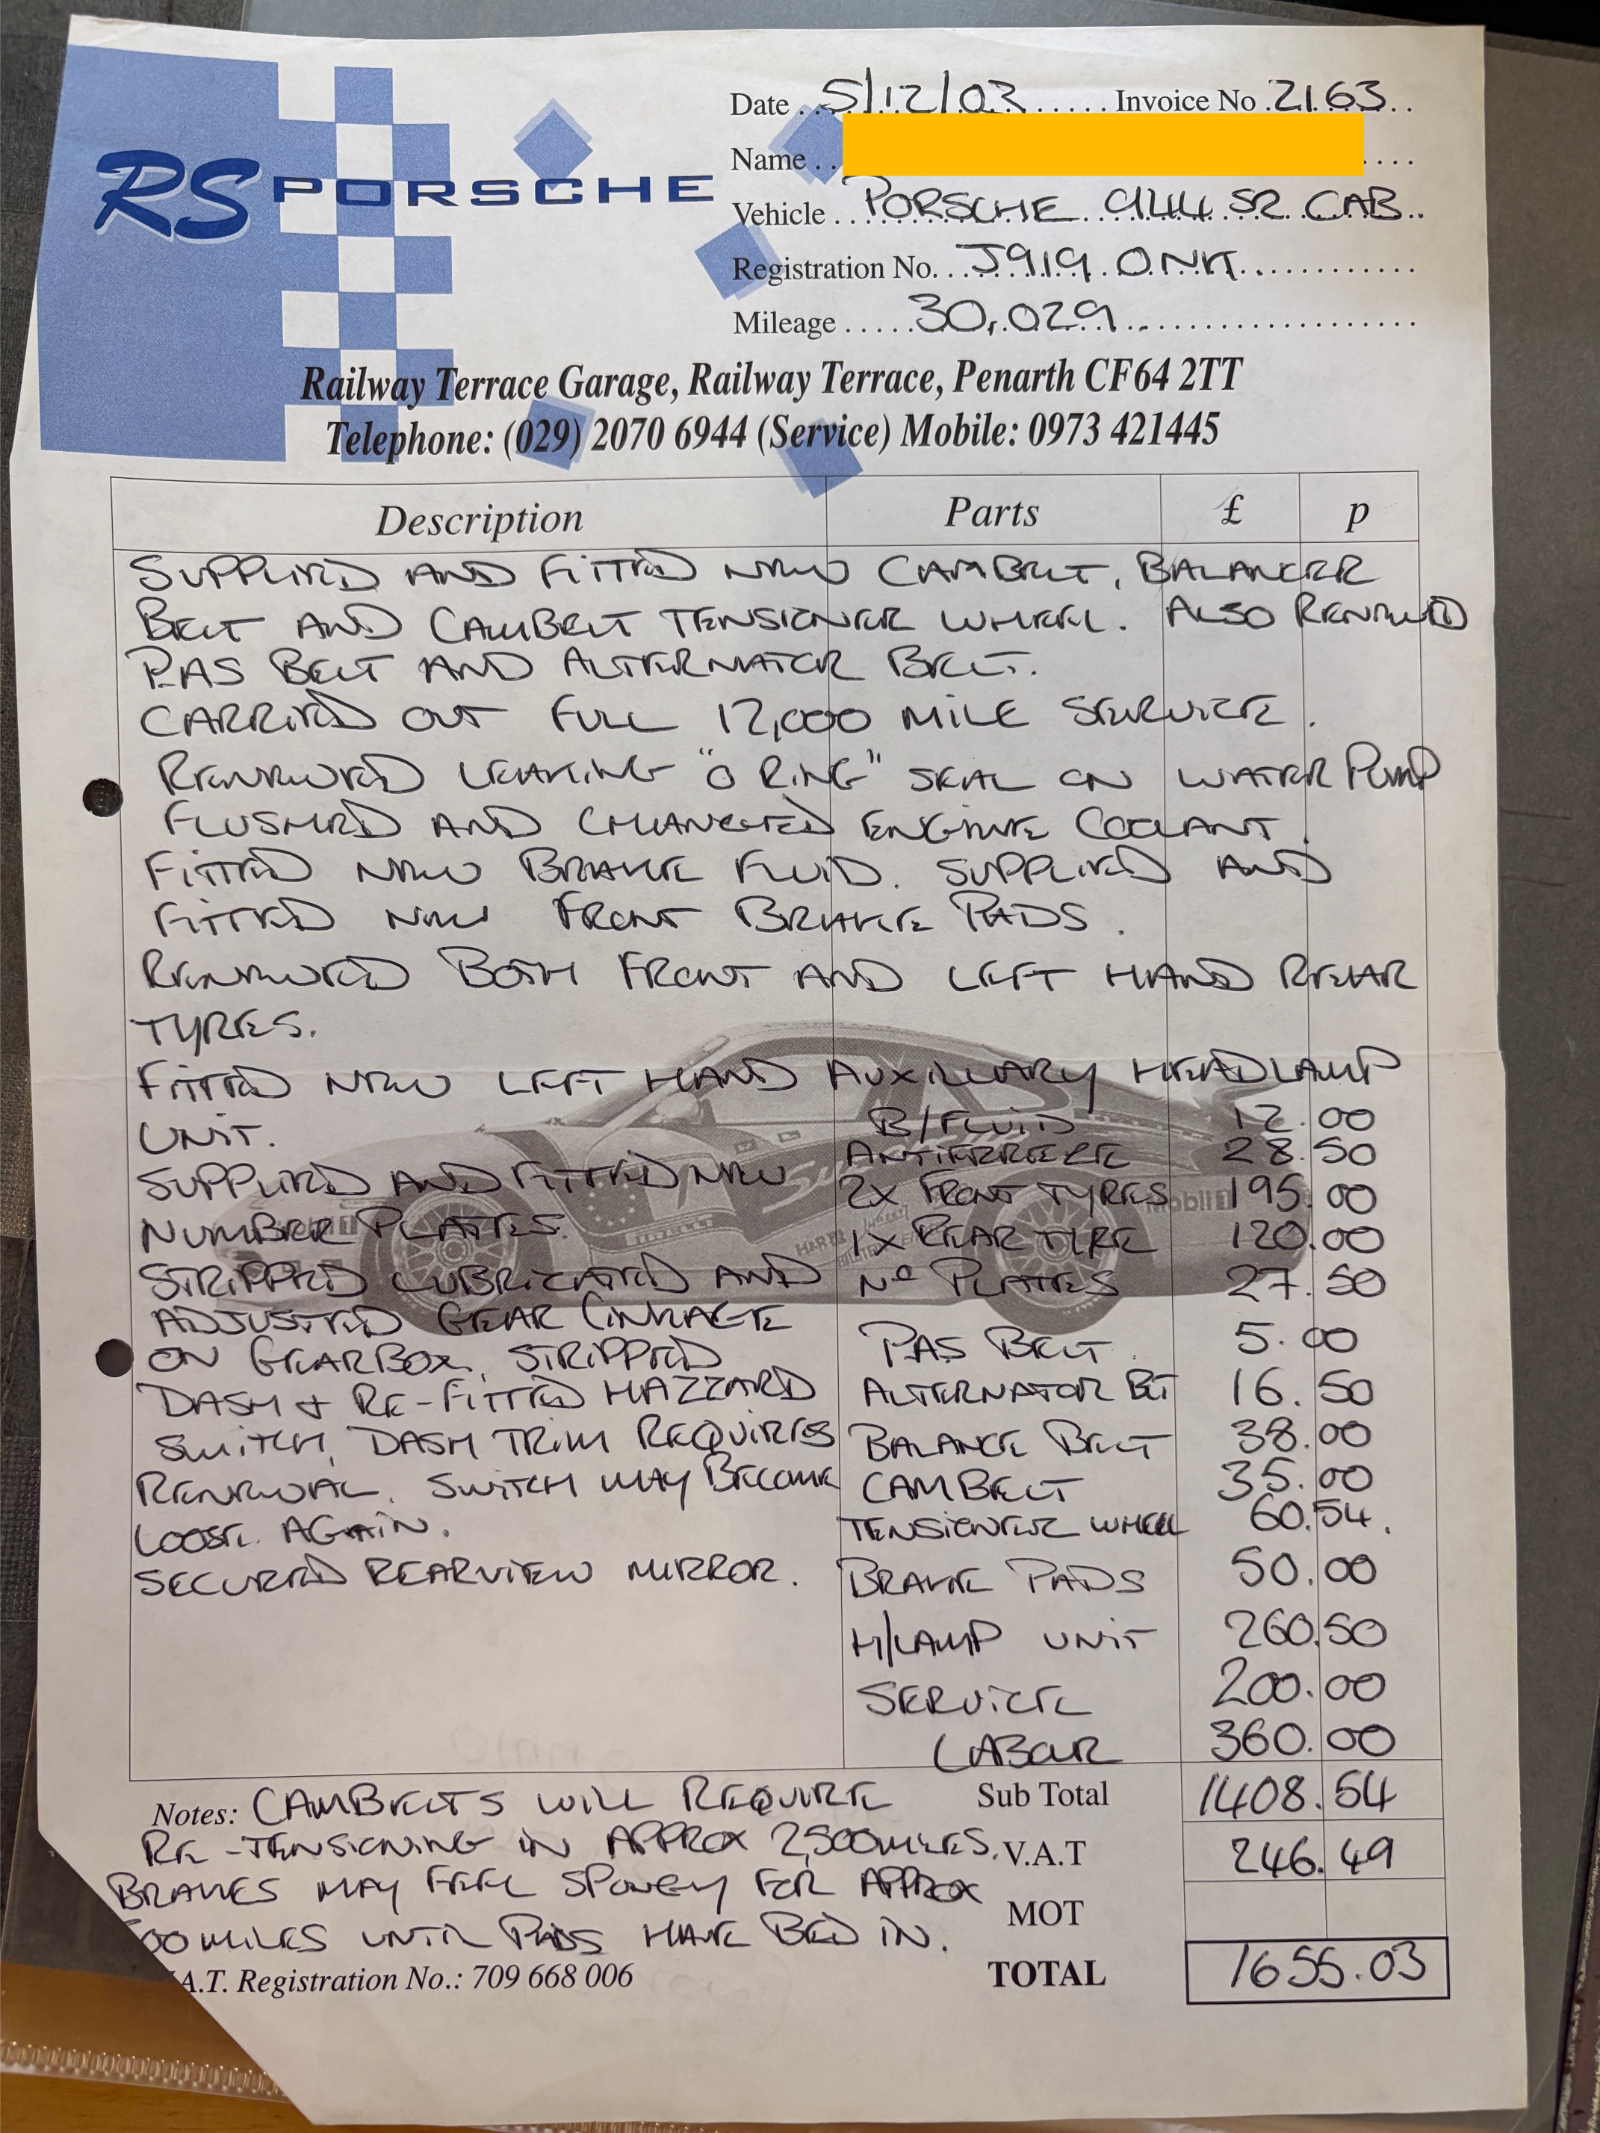 RS PORSCHE
Date 5/12/03 Invoice No 2163
Name
Vehicle PORSCHE 944 S2 CAB
Registration No. J919 ONK
Mileage 30,029
Railway Terrace Garage, Railway Terrace, Penarth CF64 2TT
Telephone: (029) 2070 6944 (Service) Mobile: 0973 421445
Description Parts £ p
SUPPLIED AND FITTED NEW CAMBELT, BALANCER
BELT AND CAMBELT TENSIONER WHEEL. ALSO RENEWED
PAS BELT AND ALTERNATOR BELT.
CARRIED OUT FULL 12,000 MILE SERVICE.
RENEWED LEAKING "O RING" SEAL ON WATER PUMP
FLUSHED AND CHANGED ENGINE COOLANT.
FITTED NEW BRAKE FLUID. SUPPLIED AND
FITTED NEW FRONT BRAKE PADS.
RENEWED BOTH FRONT AND LEFT HAND REAR
TYRES.
FITTED NEW LEFT HAND AUXILLARY HEADLAMP
UNIT. B/FLUID 12.00
ANTIFREEZE 28.50
SUPPLIED AND FITTED NEW 2X FRONT TYRES 195.00
NUMBER PLATES. 1X REAR TYRE 120.00
STRIPPED LUBRICATED AND No PLATES 27.50
ADJUSTED GEAR LINKAGE
ON GEARBOX. STRIPPED PAS BELT. 5.00
DASH + RE-FITTED HAZZARD ALTERNATOR BLT 16.50
SWITCH, DASH TRIM REQUIRES BALANCE BELT 38.00
RENEWAL. SWITCH MAY BECOME CAMBELT 35.00
LOOSE AGAIN. TENSIONER WHEEL 60.54.
SECURED REARVIEW MIRROR. BRAKE PADS 50.00
H/LAMP UNIT 260.50
SERVICE 200.00
LABOUR 360.00
Notes: CAMBELTS WILL REQUIRE Sub Total 1408.54
RE-TENSIONING IN APPROX 2,500 MILES. V.A.T 246.49
BRAKES MAY FEEL SPONGY FOR APPROX MOT
00 MILES UNTIL PADS HAVE BED IN.
.A.T. Registration No.: 709 668 006 TOTAL 1655.03